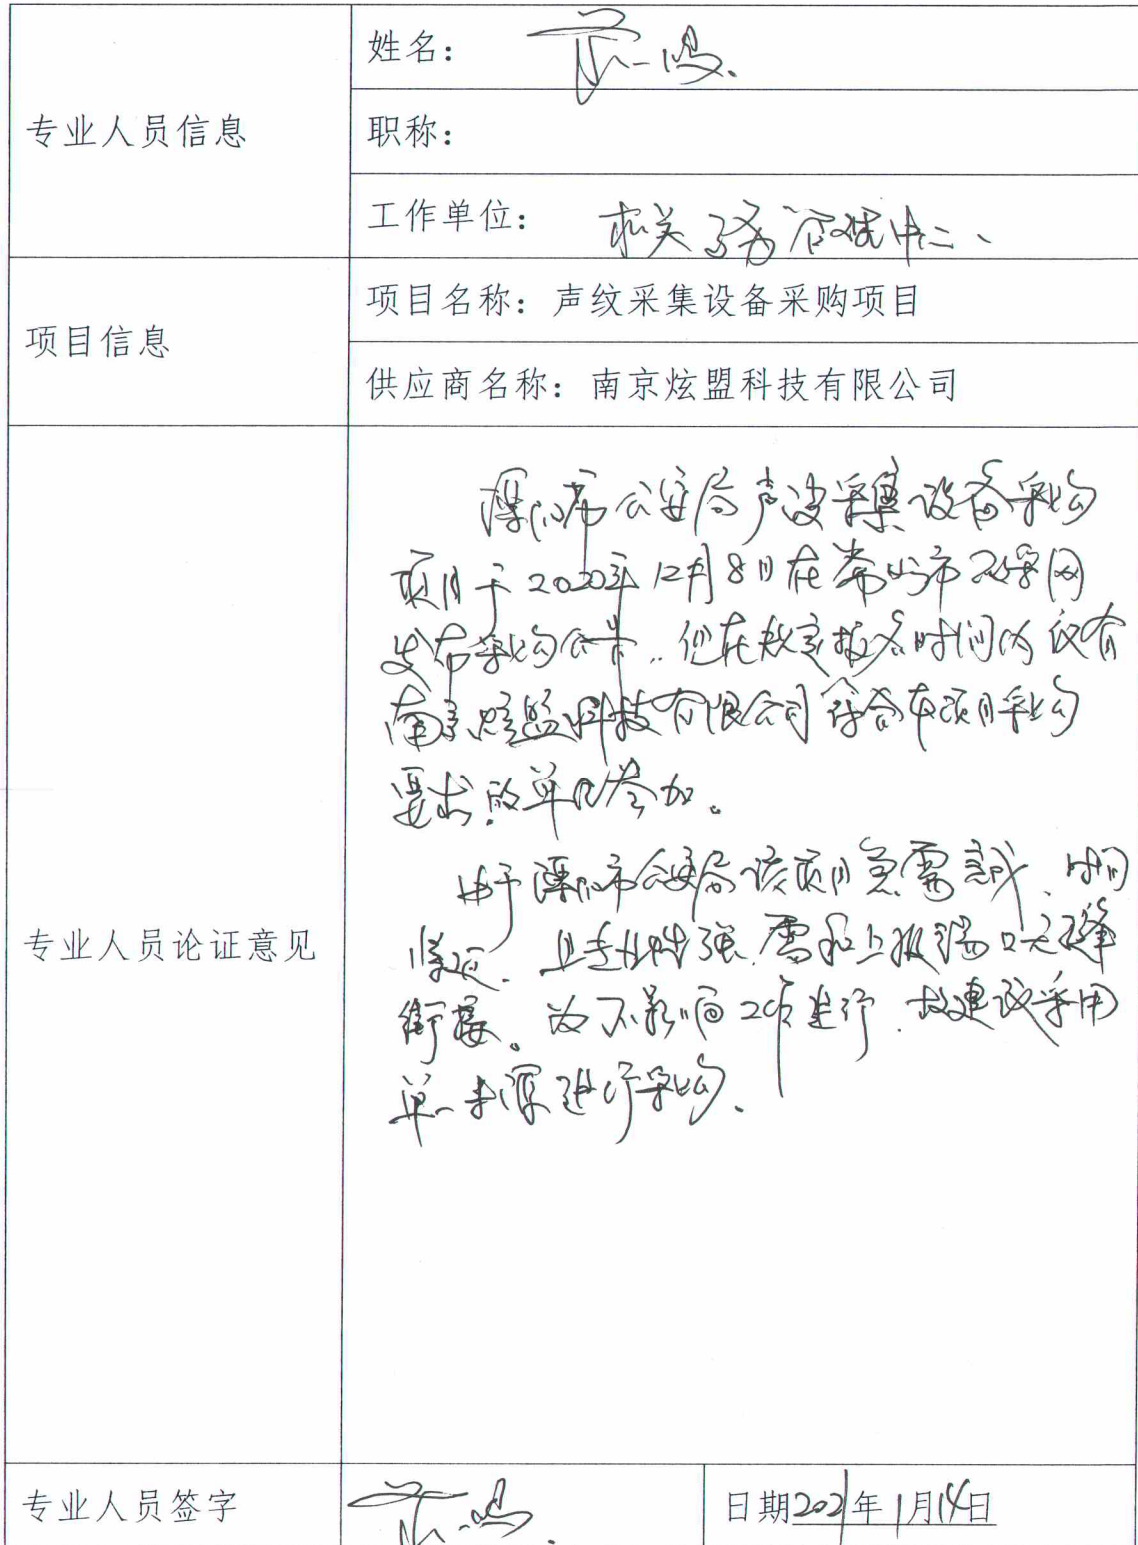 姓名：
专业人员信息
职称：
工作单位： 机关事务管理中心
项目信息
项目名称：声纹采集设备采购项目
供应商名称：南京炫盟科技有限公司
溧阳市公安局声波采集设备采购
项目于2020年12月8日在常州市政采网
发布采购公告，但在规定报名时间内仅有
南京炫盟科技有限公司符合本项目采购
要求的单位参加。
专业人员论证意见
由于溧阳市公安局该项目急需完成，时间
紧迫，且专业性强，需和上报端口无缝
衔接。为不影响工作进行，故建议采用
单一来源进行采购。
专业人员签字
日期2021年1月14日